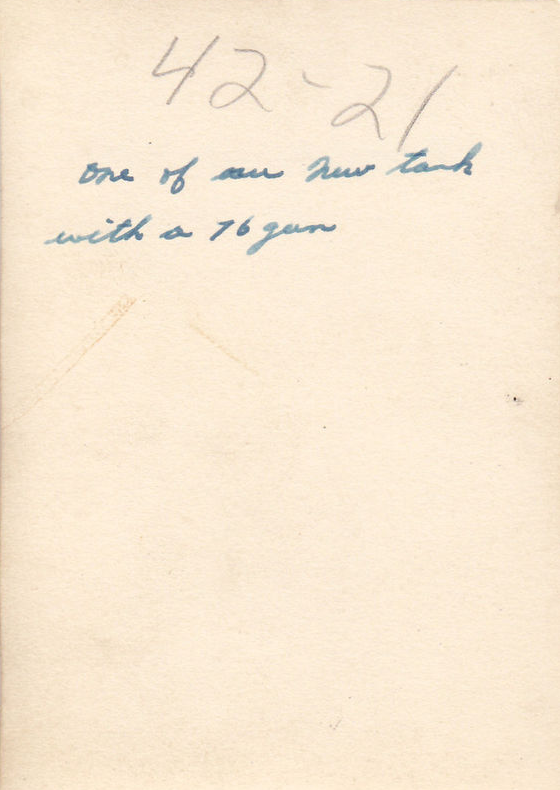 42-21
One of our new tank
with a 76 gun